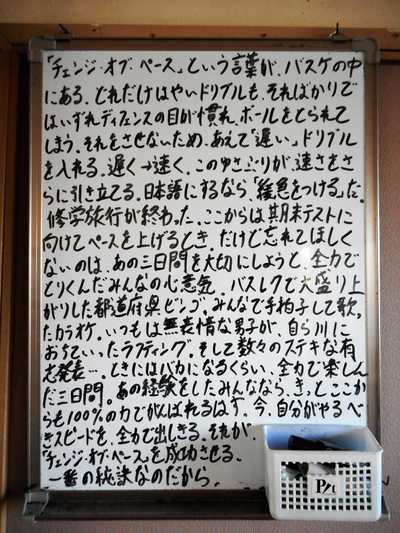 「チェンジ・オブ・ペース」という言葉が、バスケの中
にある。どれだけはやいドリブルも、そればかりで
はいずれディフェンスの目が慣れ、ボールをとられて
しまう。それをさせないため、あえて「遅い」ドリブル
を入れる。遅く→速く。このゆさぶりが、速さをさ
らに引き立てる。日本語にするなら、「緩急をつける」だ。
修学旅行が終わった。ここからは期末テストに
向けてペースを上げるとき。だけど忘れてほしく
ないのは、あの三日間を大切にしようと、全力で
とりくんだみんなの心意気。バスレクで大盛り上
がりした都道府県ビンゴ。みんなで手拍子して歌っ
たカラオケ。いつもは無表情な男子が、自ら川に
おちていったラフティング。そして数々のステキな有
志発表…。ときにはバカになるくらい、全力で楽しん
だ三日間。あの経験をしたみんななら、きっとここか
らも100%の力でがんばれるはず。今、自分がやるべ
きスピードを、全力で出しきる。それが、
「チェンジ・オブ・ペース」を成功させる、
一番の秘訣なのだから。